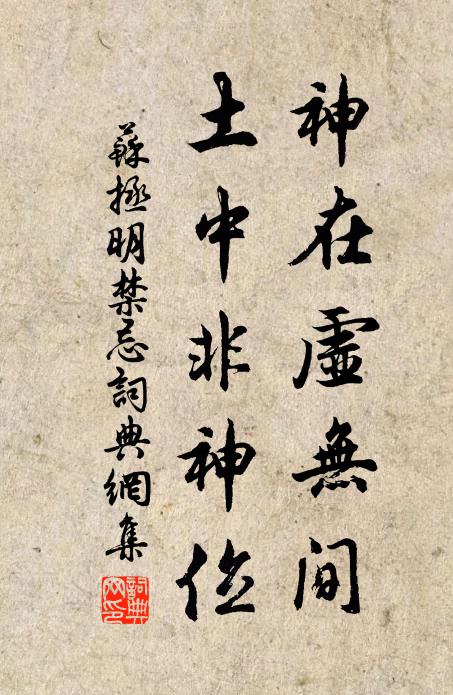 神在虛無間
土中非神位
蘇拯明禁忌詞典網集
詞典網印